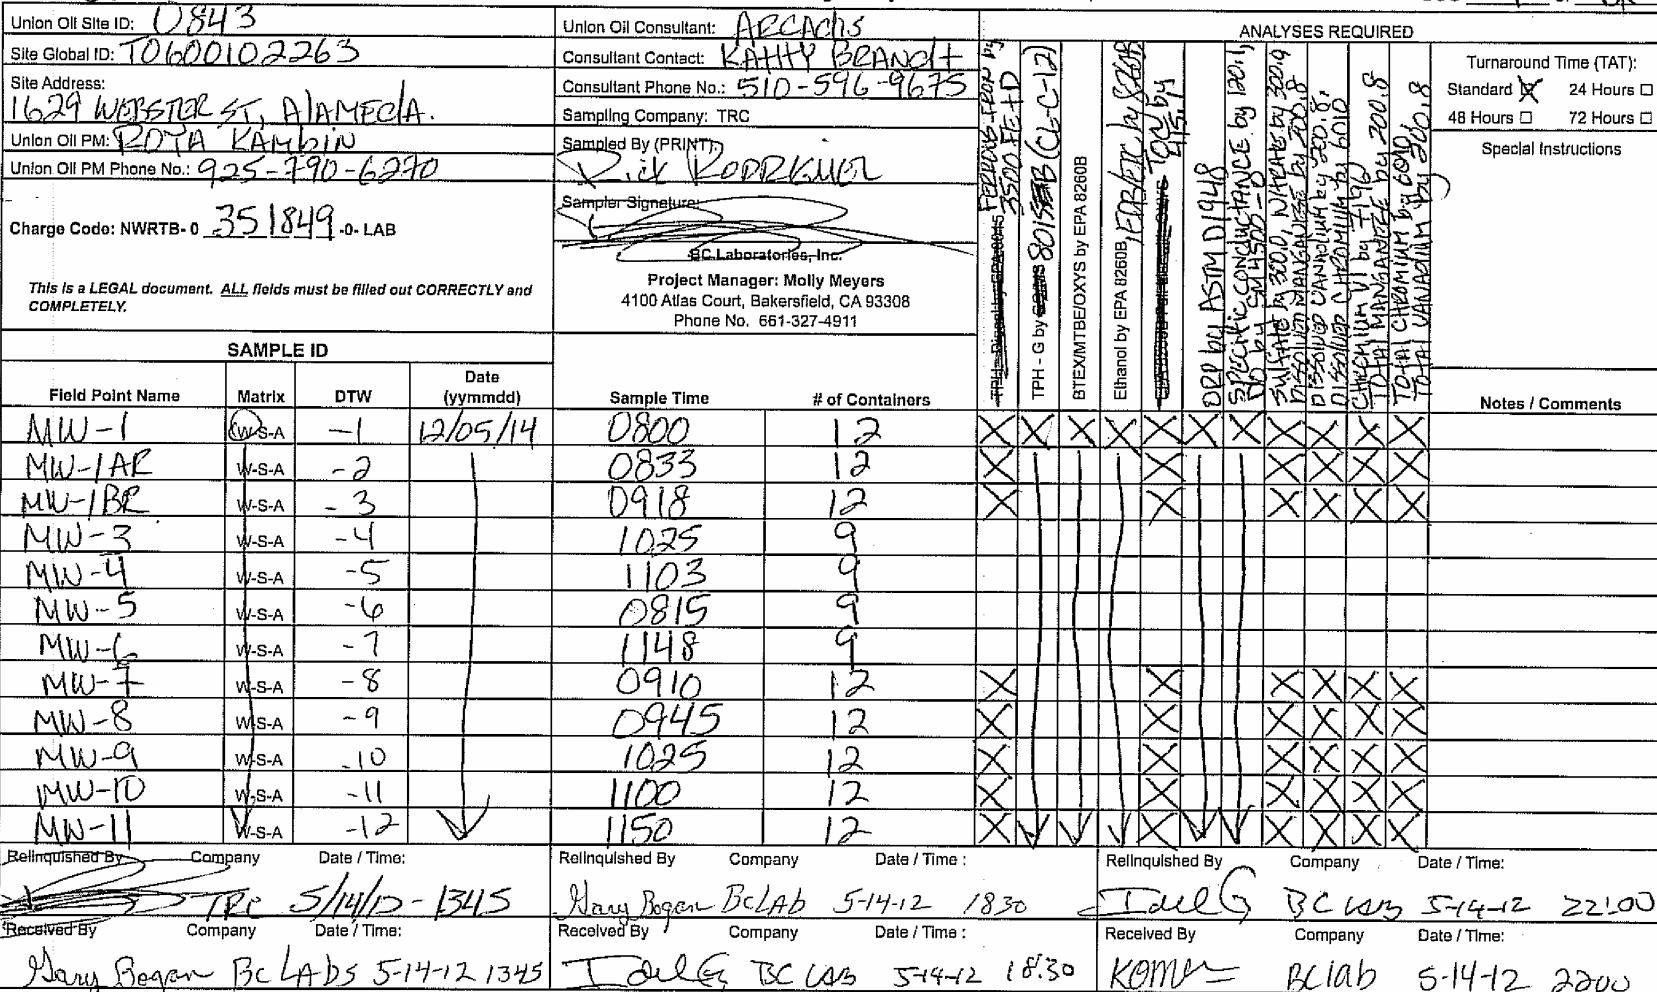 Union Oil Site ID: 0843
Site Global ID: T0600102263
Site Address:
1629 WEBSTER ST, ALAMEDA.
Union Oil PM: ROYA KAMBIN
Union Oil PM Phone No.: 925-790-6270
Charge Code: NWRTB- 0 351849 -0- LAB
This is a LEGAL document. ALL fields must be filled out CORRECTLY and
COMPLETELY.
Union Oil Consultant: ARCADIS
Consultant Contact: KATHY BRANDT
Consultant Phone No.: 510-596-9675
Sampling Company: TRC
Sampled By (PRINT):
Sampler Signature:
BC Laboratories, Inc.
Project Manager: Molly Meyers
4100 Atlas Court, Bakersfield, CA 93308
Phone No. 661-327-4911
ANALYSES REQUIRED
FERROUS IRON by
3500 FE+D
TPH - G by 8015B (C6-C-12)
BTEX/MTBE/OXYS by EPA 8260B
Ethanol by EPA 8260B, EDB/EDC by 8260B
ORP by ASTM D1498
SPECIFIC CONDUCTANCE by 120.1,
SULFATE by 300.0, NITRATE by 300.0
DISSOLVED MANGANESE by 200.8
DISSOLVED VANADIUM by 200.8,
DISSOLVED CHROMIUM by 6010
CHROMIUM VI by 7196
TOTAL MANGANESE by 200.8
TOTAL CHROMIUM by 6010
TOTAL VANADIUM by 200.8
Turnaround Time (TAT):
Standard ☒ 24 Hours ☐
48 Hours ☐ 72 Hours ☐
Special Instructions
SAMPLE ID
Field Point Name Matrix DTW Date (yymmdd) Sample Time # of Containers Notes / Comments
MW-1 W-S-A -1 12/05/14 0800 12 X X X X X X X X X X X
MW-1AR W-S-A -2 0833 12 X X X X X X
MW-1BR W-S-A -3 0918 12 X X X X X X
MW-3 W-S-A -4 1025 9
MW-4 W-S-A -5 1103 9
MW-5 W-S-A -6 0815 9
MW-6 W-S-A -7 1148 9
MW-7 W-S-A -8 0910 12 X X X X X X
MW-8 W-S-A -9 0945 12 X X X X X X
MW-9 W-S-A -10 1025 12 X X X X X X
MW-10 W-S-A -11 1100 12 X X X X X X
MW-11 W-S-A -12 1150 12 X X X X X X
Relinquished By Company Date / Time:
TRC 5/14/12 - 1345
Relinquished By Company Date / Time :
Gary Bogan BCLAb 5-14-12 1830
Relinquished By Company Date / Time:
BC LAB 5-14-12 22:00
Received By Company Date / Time:
Gary Bogan BC LAbs 5-14-12 1345
Received By Company Date / Time :
BC LAB 5-14-12 18:30
Received By Company Date / Time:
BClab 5-14-12 2200